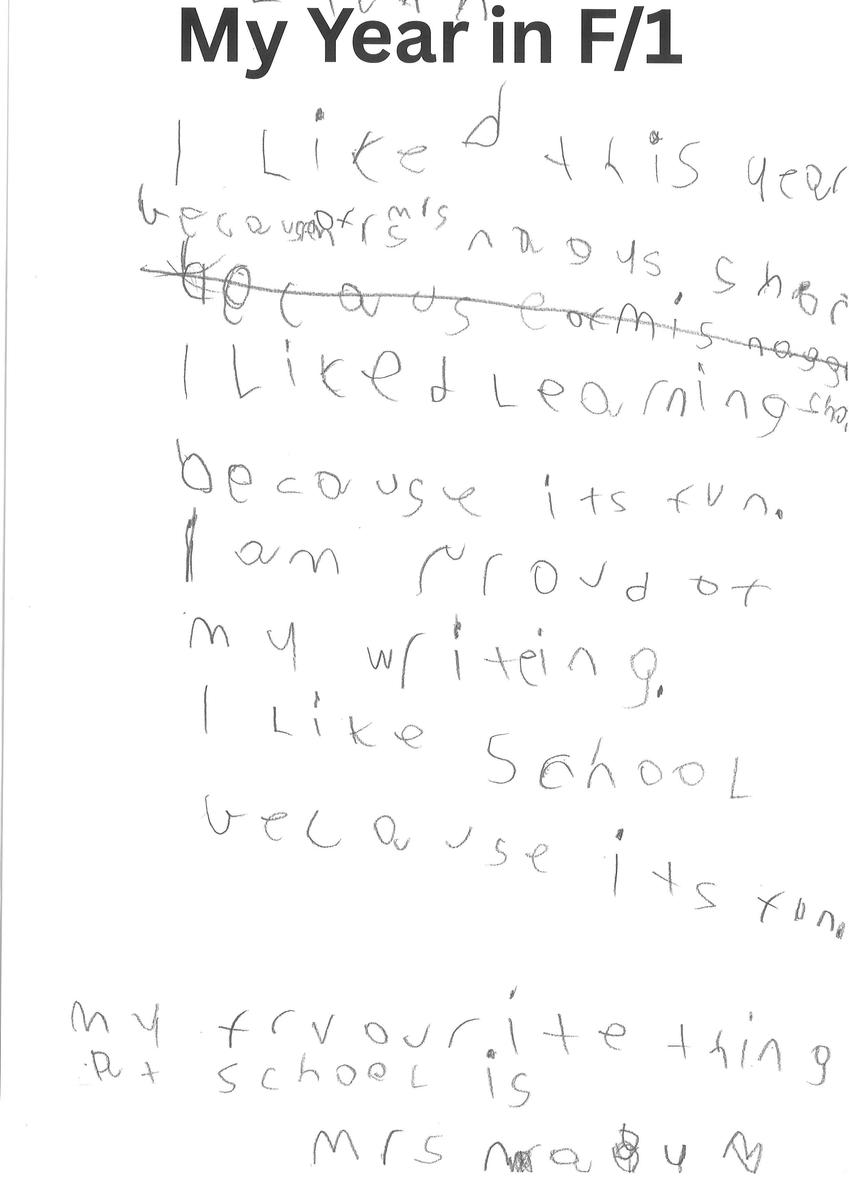 My Year in F/1
I Liked this year
because mrs
I Liked Learning
because its fun.
I am proud of
my writeing.
I Like School
because its fun.
my frvourite thing
At school is
mrs